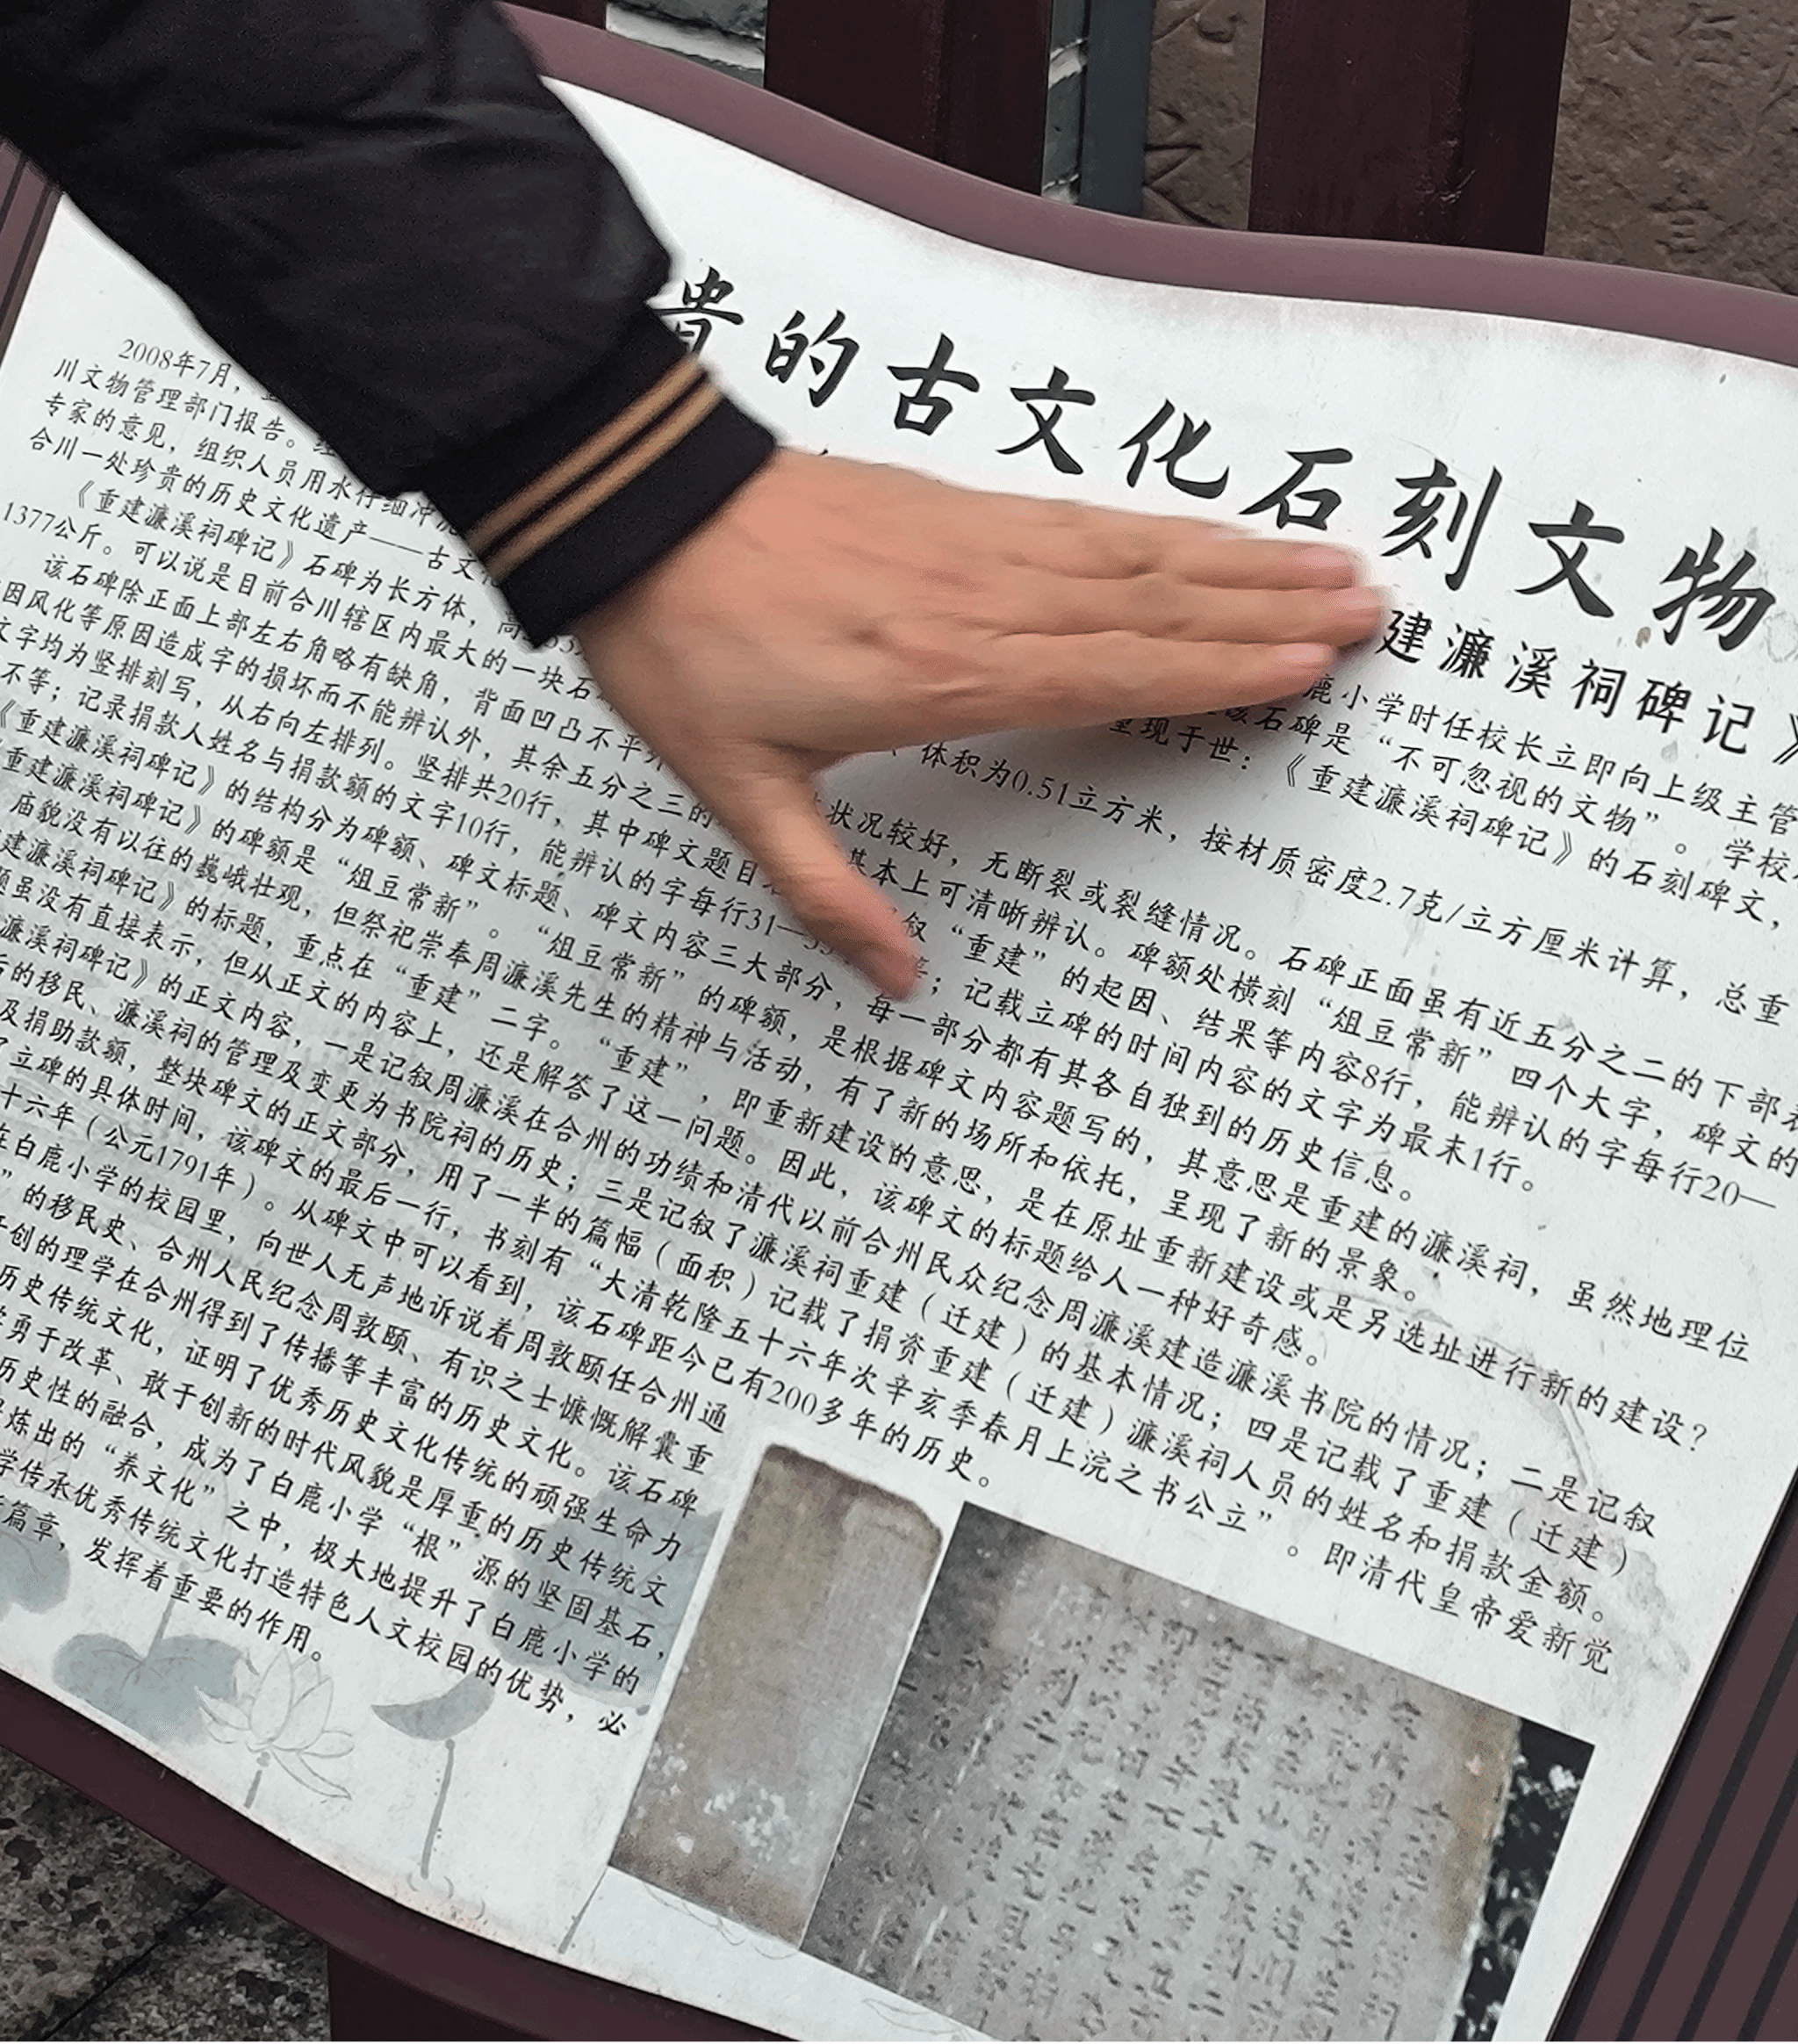 贵的古文化石刻文物
建濂溪祠碑记》
2008年7月， 鹿小学时任校长立即向上级主管
川文物管理部门报告。 该石碑是“不可忽视的文物”。学校
专家的意见，组织人员用水仔细冲 重现于世：《重建濂溪祠碑记》的石刻碑文，
合川一处珍贵的历史文化遗产——古文
《重建濂溪祠碑记》石碑为长方体，高 体积为0.51立方米，按材质密度2.7克/立方厘米计算，总重
1377公斤。可以说是目前合川辖区内最大的一块石
该石碑除正面上部左右角略有缺角，背面凹凸不平外 状况较好，无断裂或裂缝情况。石碑正面虽有近五分之二的下部
因风化等原因造成字的损坏而不能辨认外，其余五分之三的 基本上可清晰辨认。碑额处横刻“俎豆常新”四个大字，碑文的
文字均为竖排刻写，从右向左排列。竖排共20行，其中碑文题目 叙“重建”的起因、结果等内容8行，能辨认的字每行20—
不等；记录捐款人姓名与捐款额的文字10行，能辨认的字每行31— ；记载立碑的时间内容的文字为最末1行。
《重建濂溪祠碑记》的结构分为碑额、碑文标题、碑文内容三大部分，每一部分都有其各自独到的历史信息。
重建濂溪祠碑记》的碑额是“俎豆常新”。“俎豆常新”的碑额，是根据碑文内容题写的，其意思是重建的濂溪祠，虽然地理位
庙貌没有以往的巍峨壮观，但祭祀崇奉周濂溪先生的精神与活动，有了新的场所和依托，呈现了新的景象。
建濂溪祠碑记》的标题，重点在“重建”二字。“重建”，即重新建设的意思，是在原址重新建设或是另选址进行新的建设？
题虽没有直接表示，但从正文的内容上，还是解答了这一问题。因此，该碑文的标题给人一种好奇感。
濂溪祠碑记》的正文内容，一是记叙周濂溪在合州的功绩和清代以前合州民众纪念周濂溪建造濂溪书院的情况；二是记叙
后的移民、濂溪祠的管理及变更为书院祠的历史；三是记叙了濂溪祠重建（迁建）的基本情况；四是记载了重建（迁建）
及捐助款额，整块碑文的正文部分，用了一半的篇幅（面积）记载了捐资重建（迁建）濂溪祠人员的姓名和捐款金额。
了立碑的具体时间，该碑文的最后一行，书刻有“大清乾隆五十六年次辛亥季春月上浣之书公立”。即清代皇帝爱新觉
十六年（公元1791年）。从碑文中可以看到，该石碑距今已有200多年的历史。
在白鹿小学的校园里，向世人无声地诉说着周敦颐任合州通
”的移民史、合州人民纪念周敦颐、有识之士慷慨解囊重
开创的理学在合州得到了传播等丰富的历史文化。该石碑
历史传统文化，证明了优秀历史文化传统的顽强生命力
勇于改革、敢于创新的时代风貌是厚重的历史传统文
历史性的融合，成为了白鹿小学“根”源的坚固基石，
炼出的“养文化”之中，极大地提升了白鹿小学的
学传承优秀传统文化打造特色人文校园的优势，必
篇章，发挥着重要的作用。